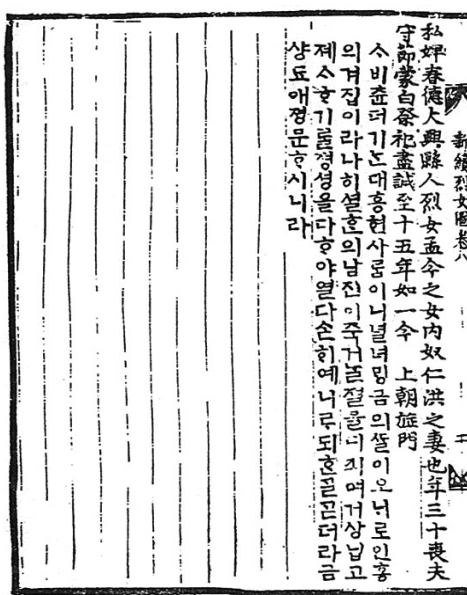 新續烈女圖卷八
私婢春德大興縣人烈女孟今之女內奴仁洪之妻也年三十喪夫
守節蒙白祭祀盡誠至十五年如一今 上朝旌門
ᄉᆞ비츈더기ᄂᆞᆫ대흥현사ᄅᆞᆷ이니녈녀ᄆᆡᆼ금의ᄯᆞᆯ이오ᄂᆡ로인홍
의겨집이라나히셜흔의남진이죽거ᄂᆞᆯ졀을디킈여거상닙고
졔ᄉᆞᄒᆞ기ᄅᆞᆯ졍셩을다ᄒᆞ야열다ᄉᆞᆫᄒᆡ예니ᄅᆞ되ᄒᆞᆫᄀᆞᆯᄀᆞᆮ더라금
샹됴애졍문ᄒᆞ시니라